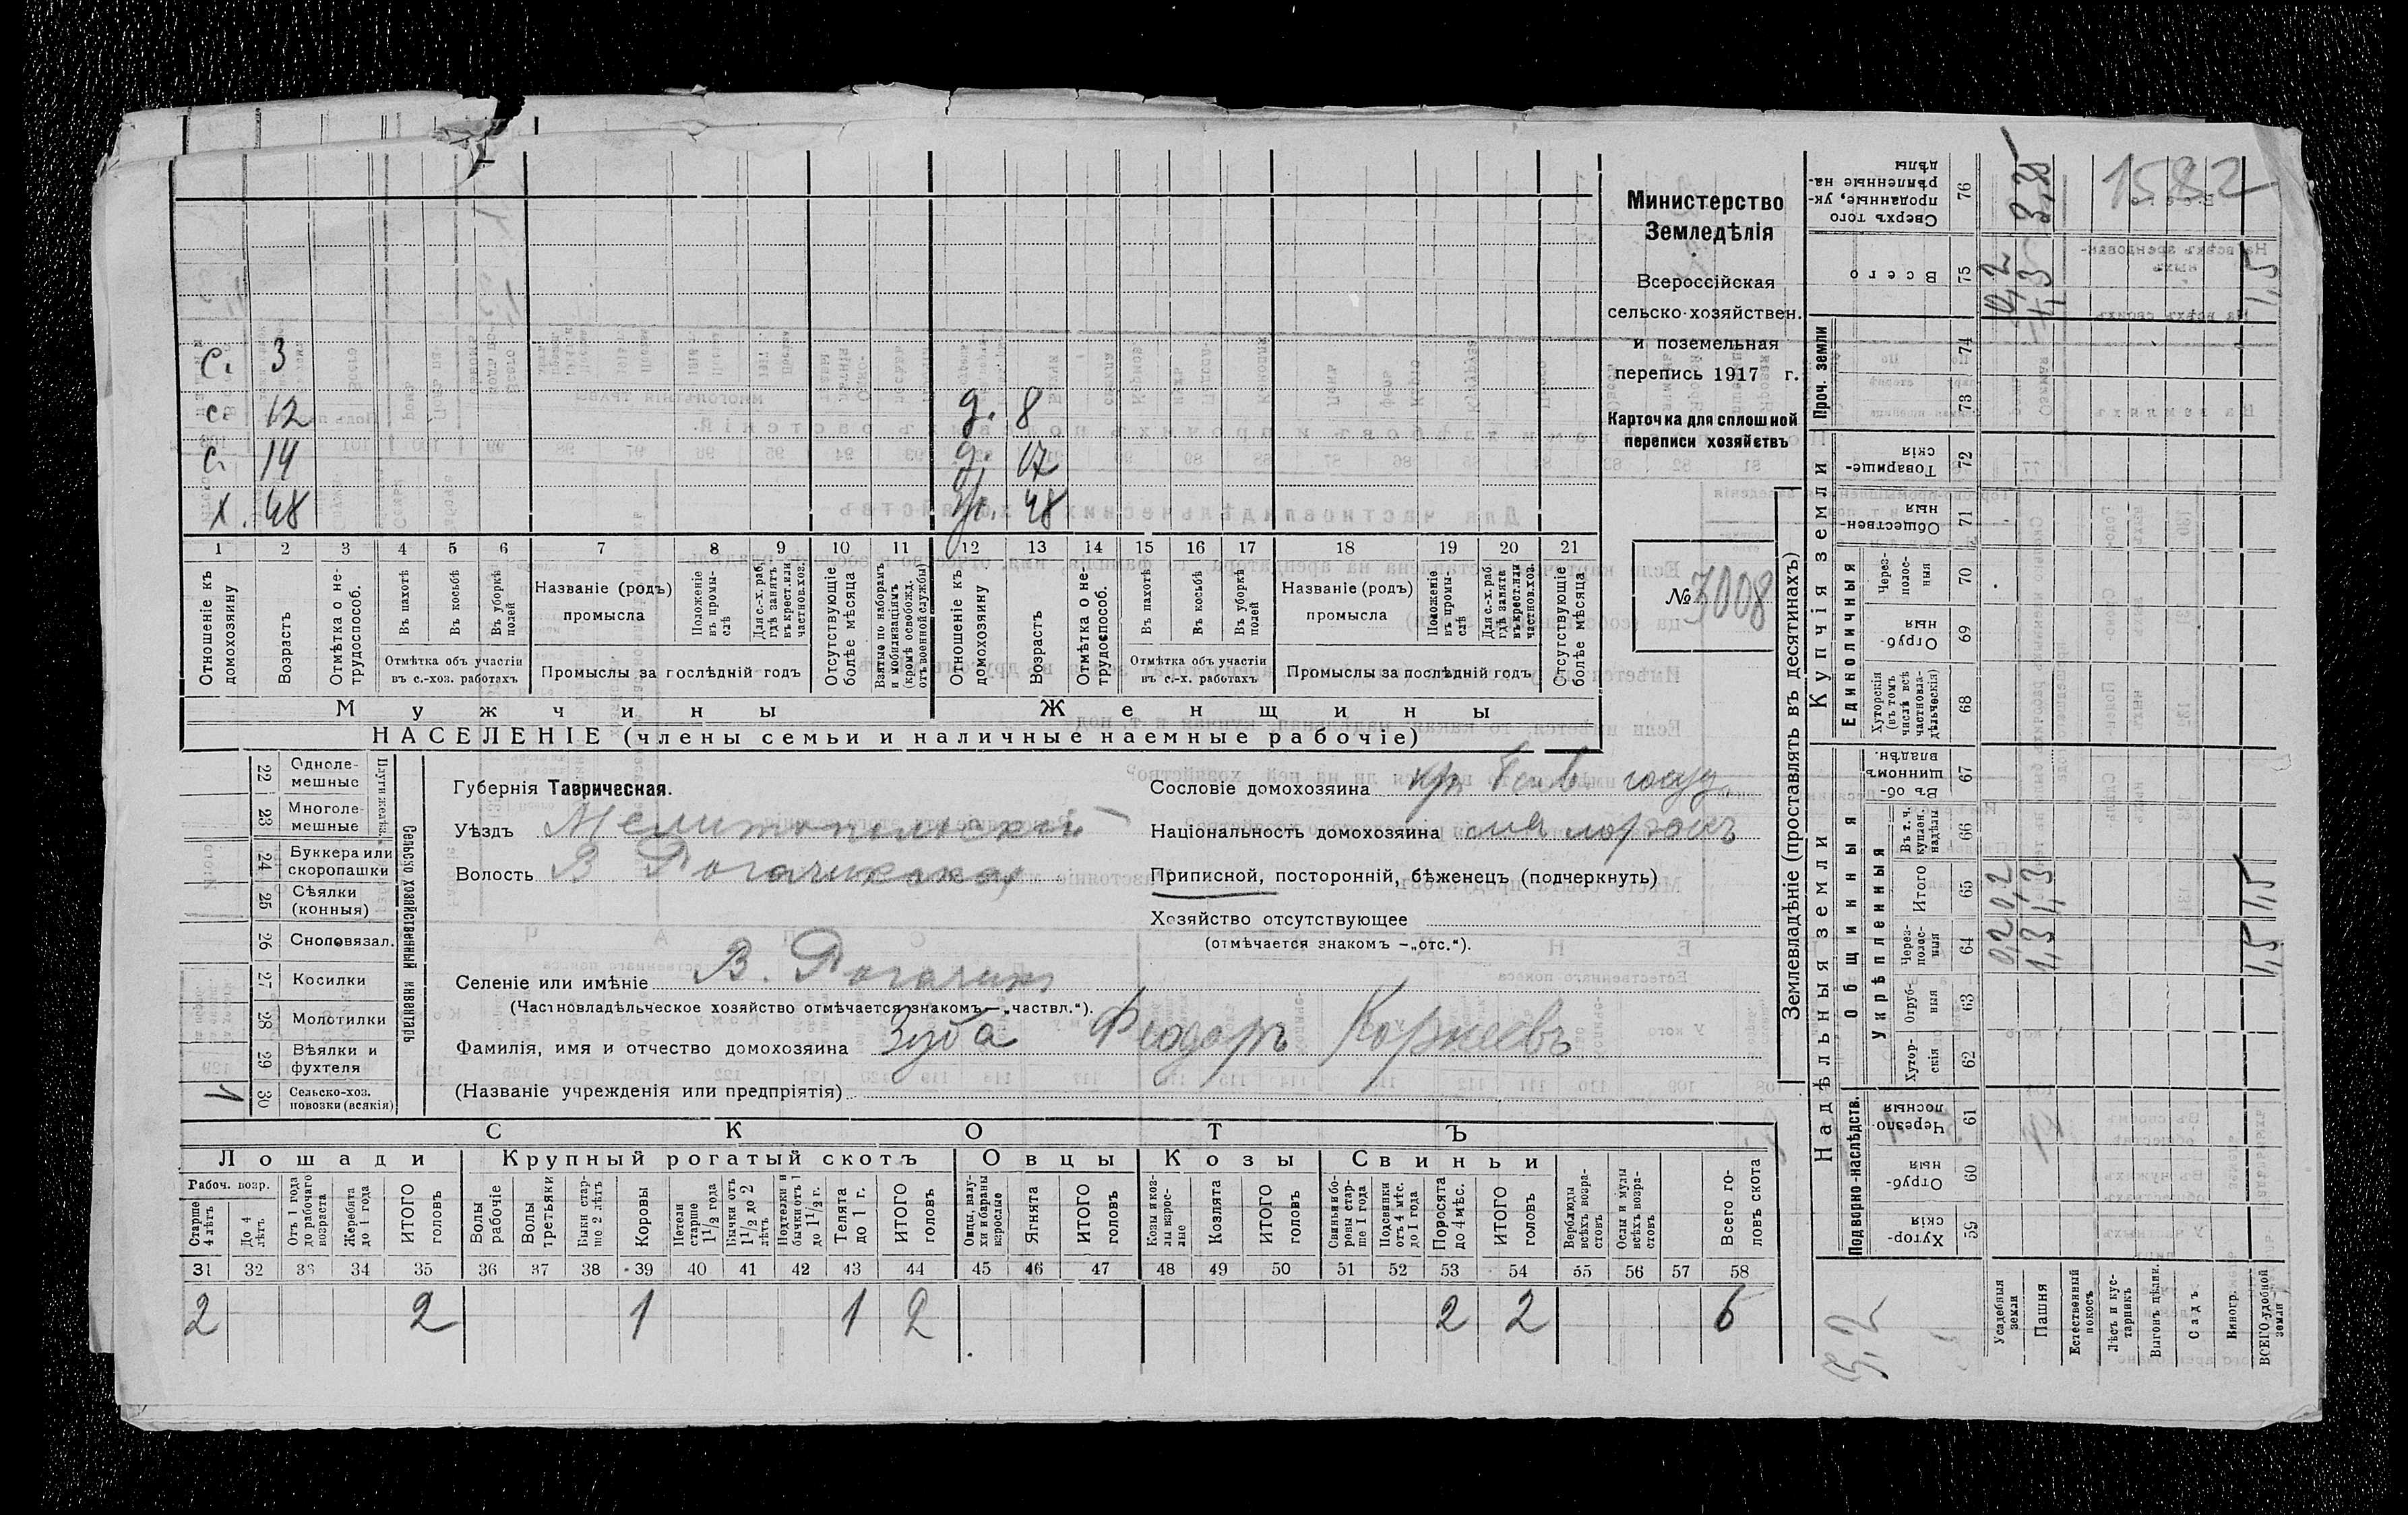 с. 3
с. 12 д. 8
с. 14 д. 17
х. 48 ж. 48
1 2 3 4 5 6 7 8 9 10 11 12 13 14 15 16 17 18 19 20 21
Отношеніе къ домохозяину
Возрастъ
Отмѣтка о нетрудоспособ.
Въ пахотѣ
Въ косьбѣ
Въ уборкѣ полей
Отмѣтка объ участіи въ с.-хоз. работахъ
Названіе (родъ) промысла
Положеніе въ промыслѣ
Для с.-х. раб. гдѣ занятъ въ крест. или частнов. хоз.
Промыслы за послѣдній годъ
Отсутствующіе болѣе мѣсяца
Взятые по наборамъ и мобилизаціямъ (кромѣ освобожд. отъ военной службы)
Отношеніе къ домохозяину
Возрастъ
Отмѣтка о нетрудоспособ.
Въ пахотѣ
Въ косьбѣ
Въ уборкѣ полей
Отмѣтка объ участіи въ с.-х. работахъ
Названіе (родъ) промысла
Положеніе въ промыслѣ
Для с.-х. раб. гдѣ занята въ крест. или частнов. хоз.
Промыслы за послѣдній годъ
Отсутствующіе болѣе мѣсяца
Мужчины Женщины
НАСЕЛЕНІЕ (члены семьи и наличные наемные рабочіе)
Министерство
Земледѣлія
Всероссійская
сельско-хозяйствен.
и поземельная
перепись 1917 г.
Карточка для сплошной
переписи хозяйствъ
№ 7008
Сельско хозяйственный инвентарь
22 Однолемешные
23 Многолемешные
24 Буккера или скоропашки
25 Сѣялки (конныя)
26 Сноповязал.
27 Косилки
28 Молотилки
29 Вѣялки и фухтеля
1 30 Сельско-хоз. повозки (всякія)
Губернія Таврическая.
Уѣздъ Мелитопольскій
Волость В Рогачикская
Селеніе или имѣніе В. Рогачикъ
(Частновладѣльческое хозяйство отмѣчается знакомъ — „частвл.“).
Фамилія, имя и отчество домохозяина Зуба Федоръ Корнеевъ
(Названіе учрежденія или предпріятія)
Сословіе домохозяина кр.
Національность домохозяина малороссъ
Приписной, посторонній, бѣженецъ (подчеркнуть)
Хозяйство отсутствующее
(отмѣчается знакомъ —„отс.“).
СКОТЪ
Лошади Крупный рогатый скотъ Овцы Козы Свиньи
Рабоч. возр.
Старше 4 лѣтъ
До 4 лѣтъ
Отъ 1 года до рабочаго возраста
Жеребята до 1 года
ИТОГО головъ
Волы рабочіе
Волы третьяки
Быки старше 2 лѣтъ
Коровы
Нетели старше 1 1/2 года
Бычки отъ 1 1/2 до 2 лѣтъ
Подтелки и бычки отъ 1 до 1 1/2 г.
Телята до 1 г.
ИТОГО головъ
Овцы, валухи и бараны взрослые
Ягнята
ИТОГО головъ
Козы и козлы взрослые
Козлята
ИТОГО головъ
Свиньи и боровы старше 1 года
Подсвинки отъ 4 мѣс. до 1 года
Поросята до 4 мѣс.
ИТОГО головъ
Верблюды всѣхъ возрастовъ
Ослы и мулы всѣхъ возрастовъ
Всего головъ скота
31 32 33 34 35 36 37 38 39 40 41 42 43 44 45 46 47 48 49 50 51 52 53 54 55 56 57 58
2 2 1 1 2 2 2 6
Землевладѣніе (проставлять въ десятинахъ)
Надѣльныя земли Купчія земли Проч. земли
Подворно-наслѣдств. Общинныя Единоличныя
Укрѣпленныя
Хуторскія 59
Отрубныя 60
Черезполосныя 61
Хуторскія 62
Отрубныя 63
Черезполосныя 64
Итого 65
Въ т. ч. куплен. надѣлы 66
Въ общинномъ владѣн. 67
Хуторскія (въ томъ числѣ всѣ частновладѣльческія) 68
Отрубныя 69
Черезполосныя 70
Общественныя 71
Товарищескія 72
73
74
Всего 75
Сверхъ того проданные, укрѣпленные надѣлы 76
Усадебныя земли 0,2 0,2 0,2
Пашня 1,3 1,3 1,3
Естественный покосъ
Лѣсъ и кустарникъ
Выгонъ цѣлин.
Садъ
Виногр.
ВСЕГО удобной земли 1,5 1,5 1,5
1582